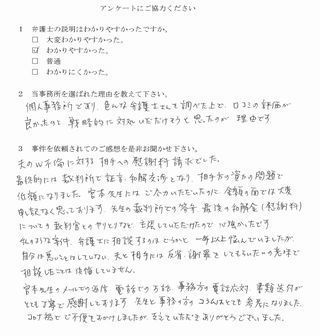 アンケートにご協力ください
1 弁護士の説明はわかりやすかったですか。
□ 大変わかりやすかった。
☑ わかりやすかった。
□ 普通
□ わかりにくかった。
2 当事務所を選ばれた理由を教えて下さい。
個人事務所であり 色んな弁護士さんを調べた上で、口コミの評価が
良かったのと 戦略的に対処いただけそうと思ったのが 理由です
3 事件を依頼されてのご感想を是非お聞かせ下さい。
夫のW不倫に対する 相手への慰謝料請求でした。
最終的には裁判所で証言、和解交渉となり 相手方の
依頼になりました。宮本先生には ご尽力いただいたのに 金額の面では大変
申し訳なく思っております。先生の裁判所での答弁 最後の和解金(慰謝料)
についての裁判官とのやりとりなど 主張していただけたので 心強かったです
似たような案件、弁護士に相談するのはどうかと 一年以上悩んでいましたが
自分は悪いことはしていない。夫と相手には反省、謝罪をしてもらいたいの意味で
相談したことは後悔していません。
宮本先生のメールでの返信 電話での対応、事務方の電話応対、書類送付が
とても丁寧で感謝しております 先生と事務の方のコラムはとても参考になりました。
ご不便をおかけしましたが 支えていただきありがとうございました。